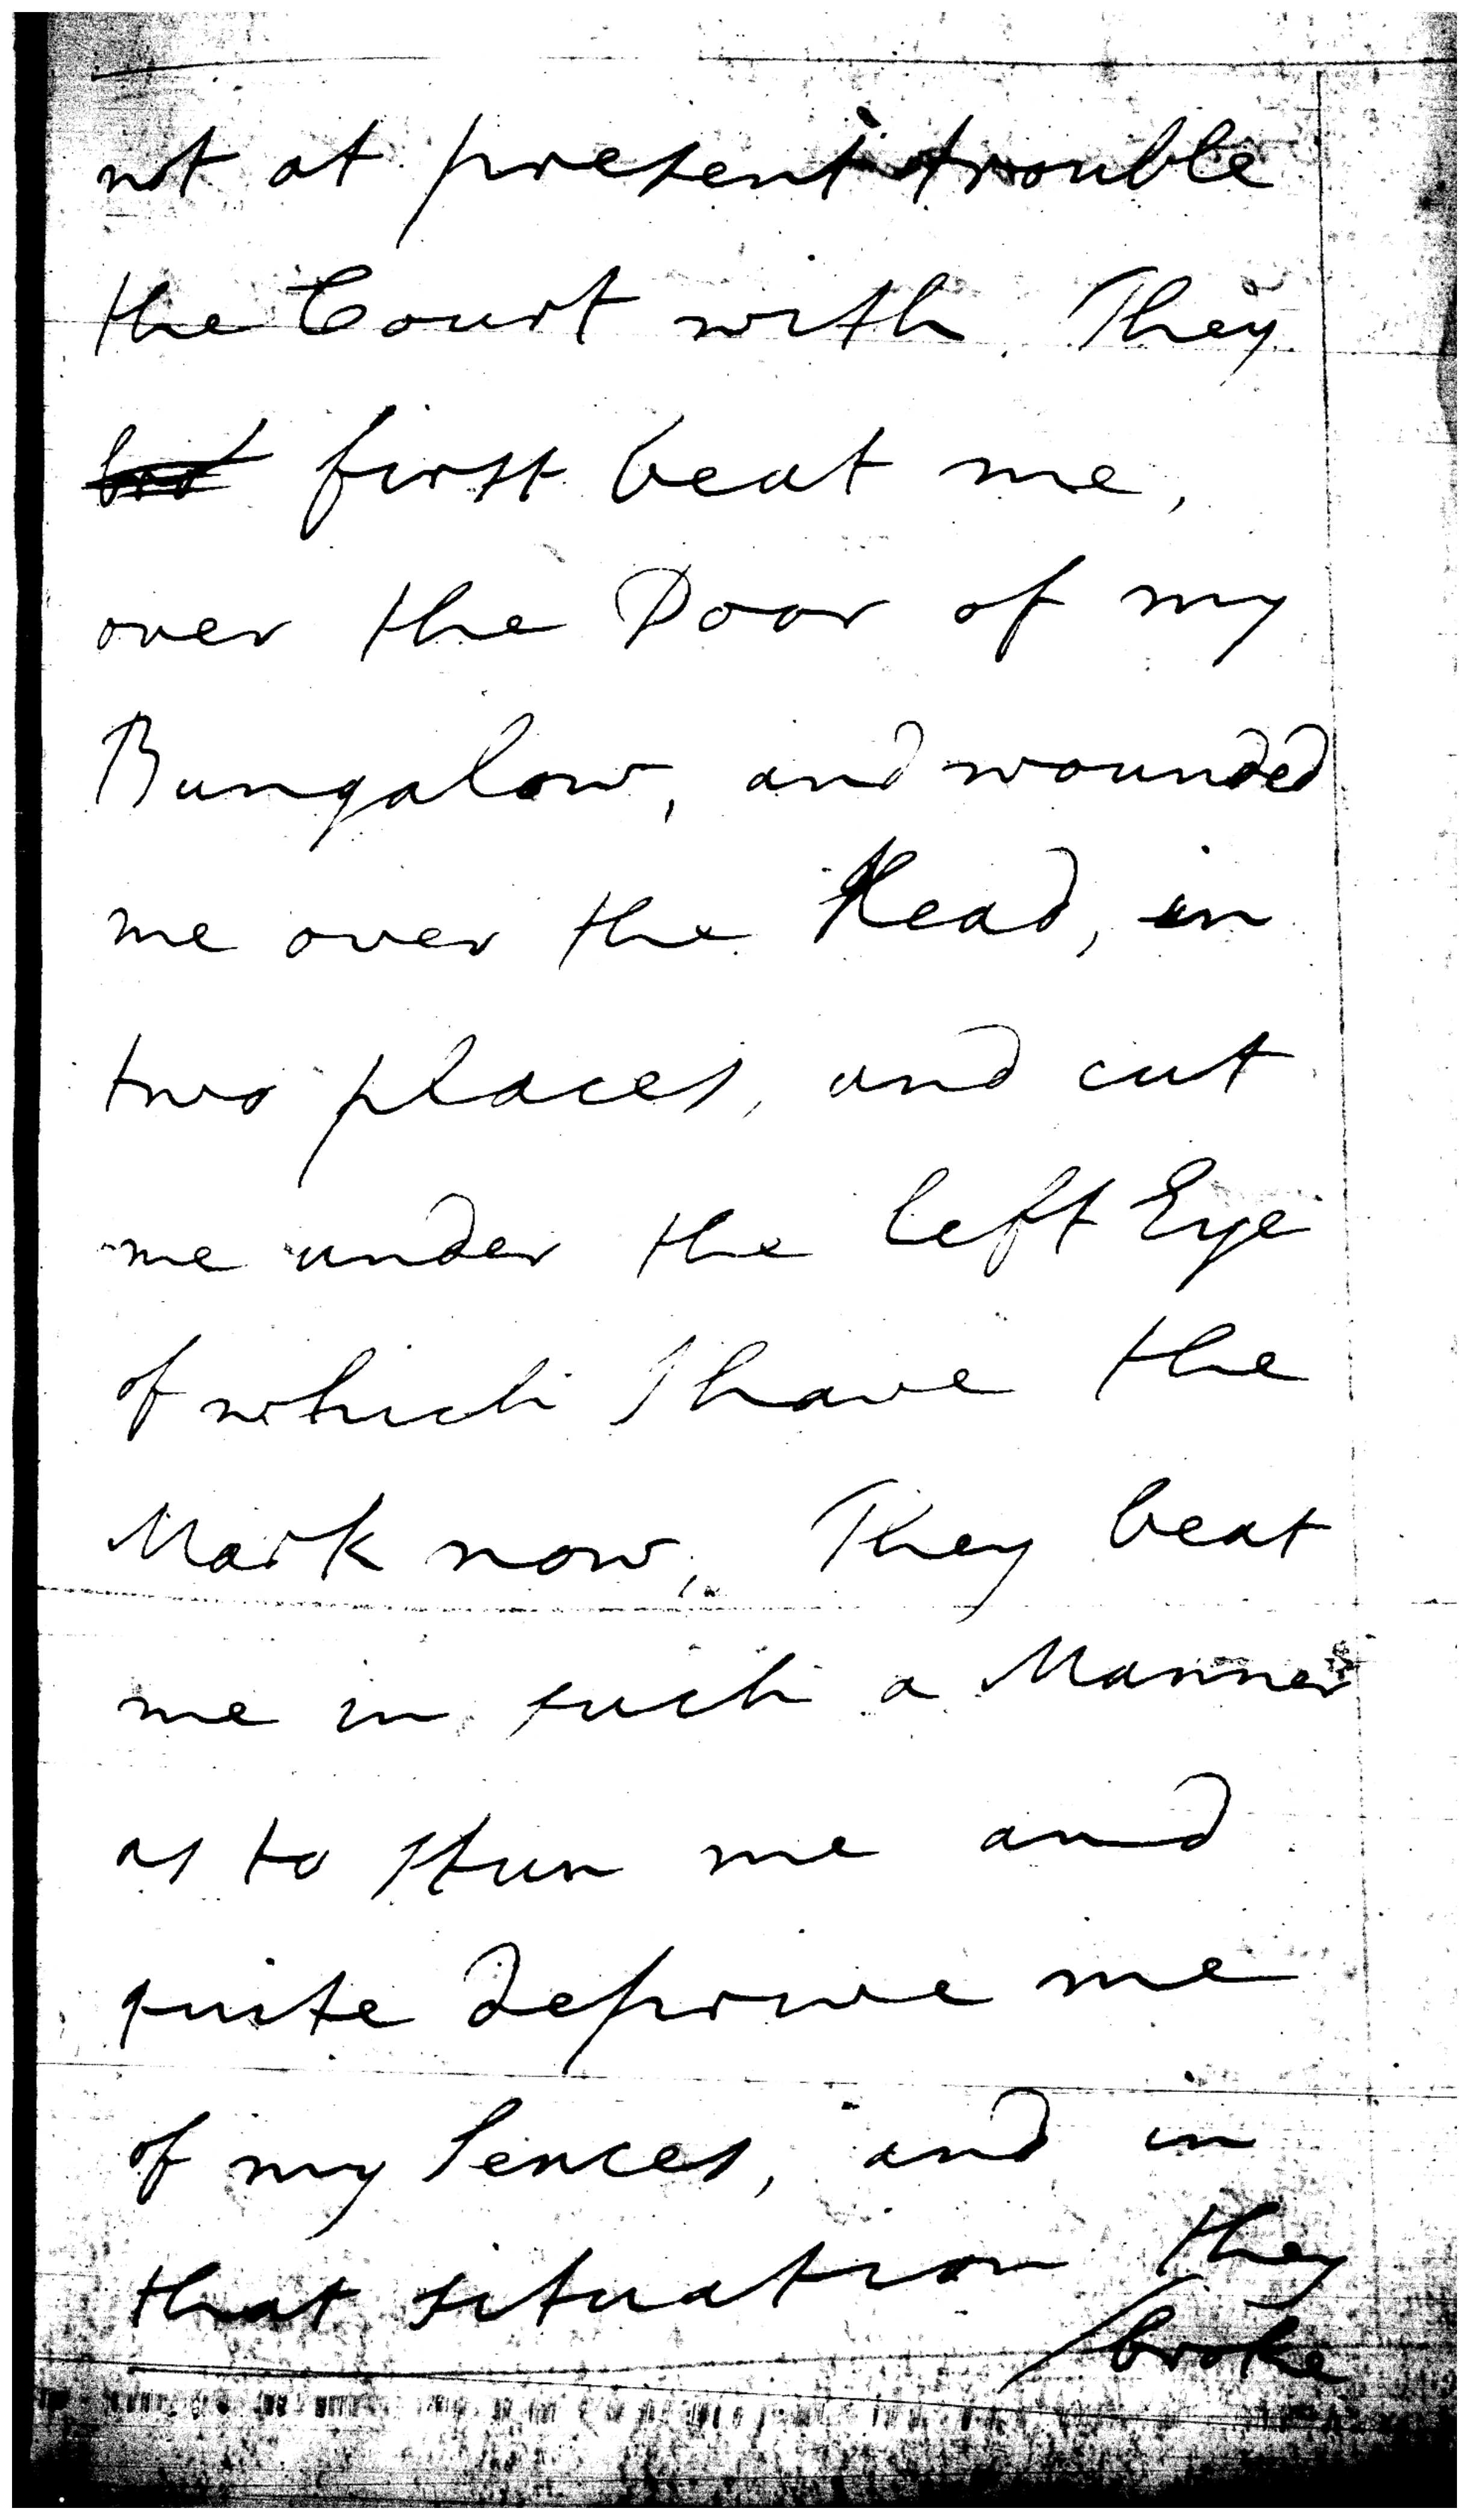 not at present trouble
the Court with. They
first beat me,
over the Door of my
Bungalow, and wounded
me over the Head, in
two places, and cut
me under the left Eye
of which I have the
Mark now, They beat
me in such a Manner
as to stun me and
quite deprive me
of my Sences, and in
that situation they
/broke